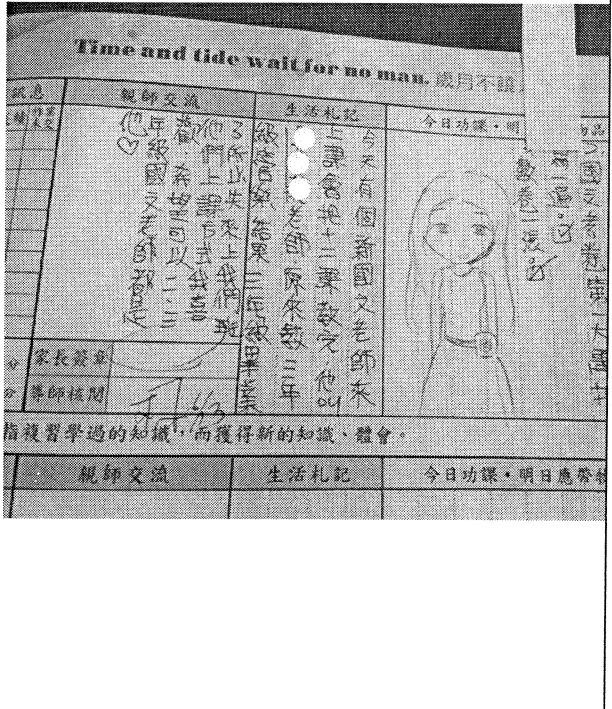 Time and tide wait for no man. 歲月不饒
訊息
親師交流
生活札記
今日功課・明
物品
今天有個新國文老師來
上課會把十二課教完,他叫
老師,原來教三年
級音樂,結果三年級畢業
了所以先來上我們班
他們上課方式,我喜
歡,希望可以二、三
年級國文老師都是
他♡
國文考卷
數卷一張
家長簽章
導師核閱
6/13
指複習學過的知識,而獲得新的知識、體會。
親師交流
生活札記
今日功課・明日應帶物